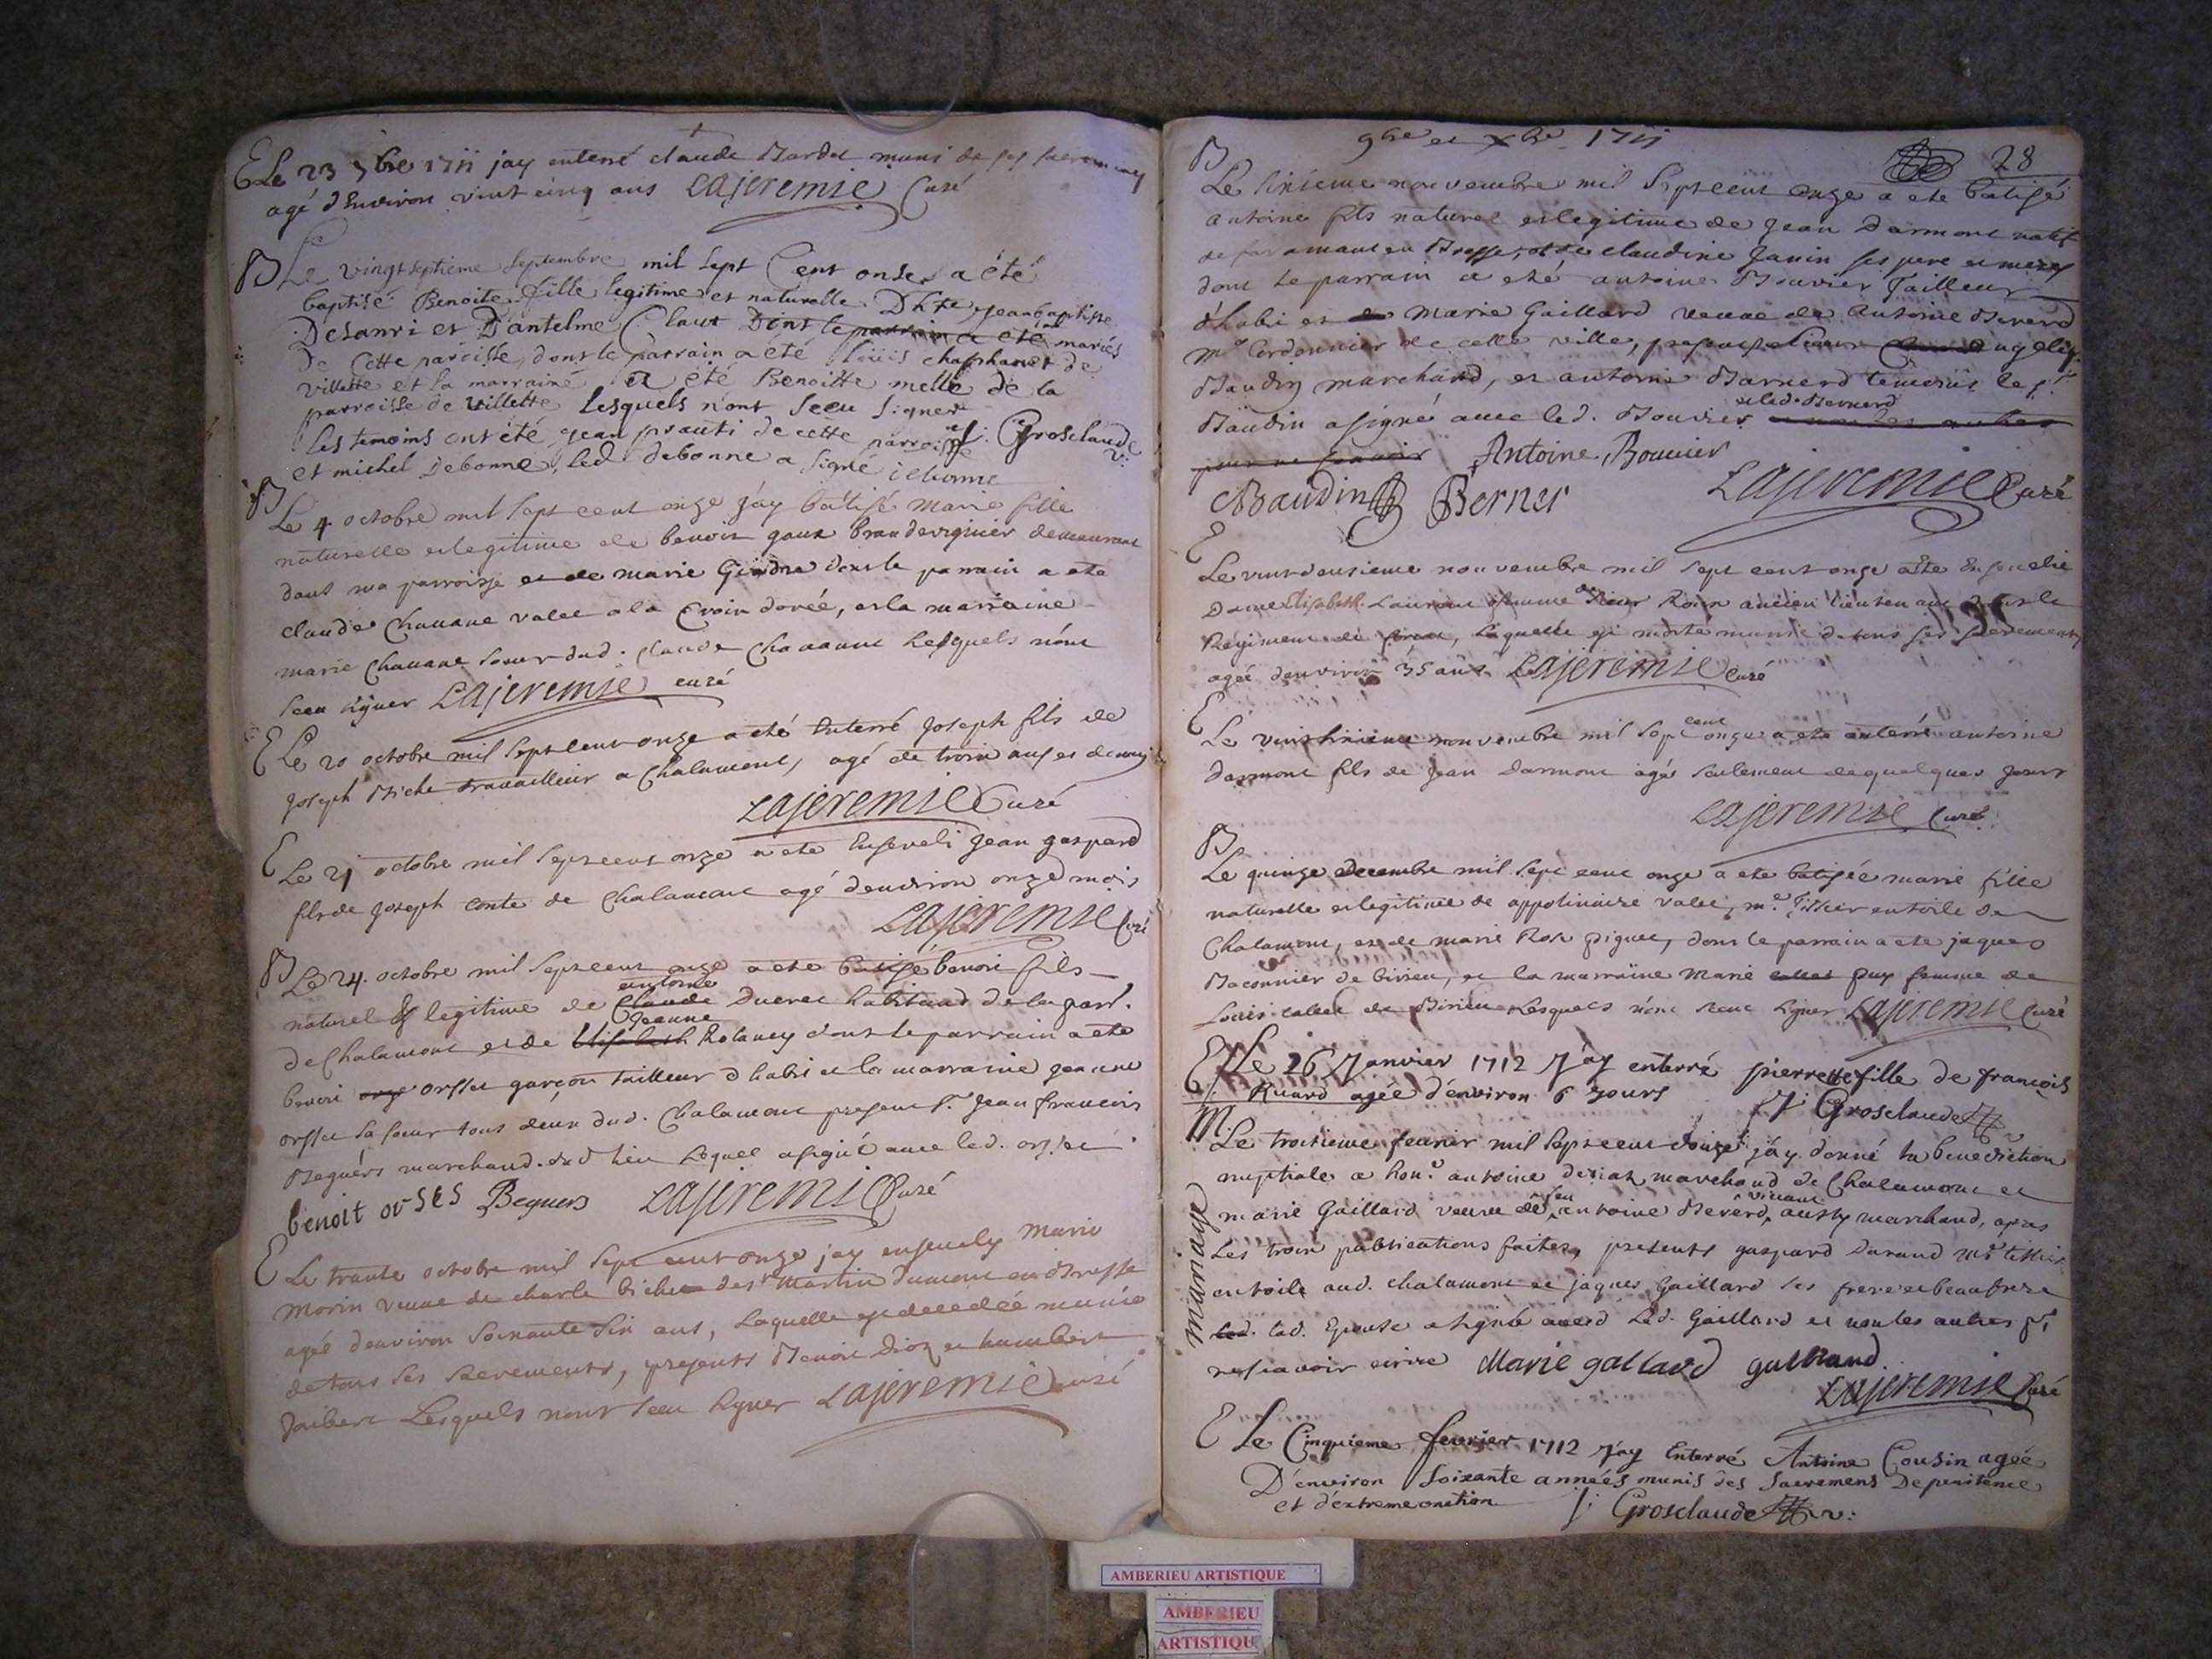 E Le 23 7bre 1711 jay enterré claude Bardet muni de ses sacremens
agé d'Environ vint cinq ans Lajeremie Curé
B Le vingtseptieme septembre mil sept Cent onse a été
baptisé Benoite fille legitime et naturelle jean baptiste
Desanvi et D'antelme Claut Dont le parrain a été mariés
De Cette paroisse, dont le parrain a été loüis de
villette et la marraine a été Benoitte melle de la
parroisse de villette lesquels n'ont sceu signer
les temoins ont été jean prauti de cette parroisse J. Grosclaude v:
et michel Debonne, led. debonne a signé
B Le 4 octobre mil sept cent onze j'ay batisé marie fille
naturelle et legitime de benoit goux demeurant
dans ma parroisse et de marie Gindre dont le parrain a ete
claude Chanane valet a la Croix dorée, et la marraine
marie Chanane soeur dud. claude Chanane lesquels n'ont
sceu signer Lajeremie curé
E Le 20 octobre mil sept cent onze a eté enterré joseph fils de
joseph Miche travailleur a Chalamont, agé de trois ans et demy
Lajeremie Curé
E Le 21 octobre mil sept cent onze a ete enseveli jean gaspard
fils de joseph conte de Chalamont agé d'environ onze mois
Lajeremie Curé
B Le 24. octobre mil sept cent onze a ete batisé benoit fils
antoine
naturel & legitime de Claude Ducret habitant de la parr.
jeanne
de Chalamont et de Elisabeth Rolancy dont le parrain a ete
benoit orsset garçon tailleur d'habit et la marraine jeanne
orsset sa soeur tous deux dud. Chalamont present sr. jean francois
Beguers marchand dud lieu lequel a signé avec led. orsset
benoit orses Beguers Lajeremie Curé
E Le trante octobre mil sept cent onze jay ensevely marie
morin veuve de charle bichet de st martin dumont en Bresse
agée d'environ soixante six ans, laquelle est decedée munie
de tous ses sacrements, presents Benoit Dioz et humbert
Jaibert lesquels n'ont sceu signer Lajeremie curé
9bre et Xbre 1711
28
B Le sixieme novembre mil sept cent onze a ete batisé
antoine fils naturel et legitime de jean Darmont natif
de faramant en Bresse, et de claudine Janin ses pere et mere
dont le parrain a eté antoine Bouvier Tailleur
d'habi et Marie Gaillard veuve de Antoine Bererd
mre Cordonnier de cette ville,
Baudin marchand, et antoine Barnerd temoins le sr.
et led. Bernerd
Baudin a signé avec led. Bouvier
Antoine Bouuier
Baudin Berner Lajeremie Curé
E Le vint deusieme novembre mil sept cent onze a ete Ensevelie
Dame Elisabeth Laurent femme de sieur Roux ancien lieutenant dans le
Regiment de, laquelle est morte munie de tous ses sacrements
agée d'environ 35 ans Lajeremie Curé
cent
E Le vint sixieme novembre mil sept onze a ete enterré antoine
Darmont fils de jean Darmont agé seulement de quelques jours
Lajeremie Curé
B Le quinze decembre mil sept cent onze a ete batisée marie fille
naturelle et legitime de appolinaire valet, mre. Tissier en toile de
Chalamont, et de marie Rose piguet, dont le parrain a ete jaques
Maconnier de birieu, et la marraine marie puy femme de
Louis de Birieu lesquels n'ont sceut signer Lajeremie Curé
E Le 26 Janvier 1712 J'ay enterré pierrette fille de françois
Ruard agée d'environ 6 Jours J. Grosclaude v
M Le troisieme feurier mil sept cent douze j'ay donné la benediction
nuptiale a hon. antoine deriat marchand de Chalamont et
feu vivant
marie Gaillard veuve de antoine Bererd, aussy marchand, apres
Les trois publications faites, presents gaspard Durand mre tissier
en toile aud. Chalamont et jaques Gaillard ses frere et beaufrere
lad. Epouse a signé avec Led. Gaillard et non les autres pr
ne sçavoir ecrire Marie gallard galliand
mariage
Lajeremie Curé
E Le Cinquieme feurier 1712 J'ay Enterré Antoine Cousin agée
D'environ soixante années munis des sacremens De penitence
et d'extreme onction J. Grosclaude v:
AMBERIEU ARTISTIQUE
AMBERIEU
ARTISTIQU